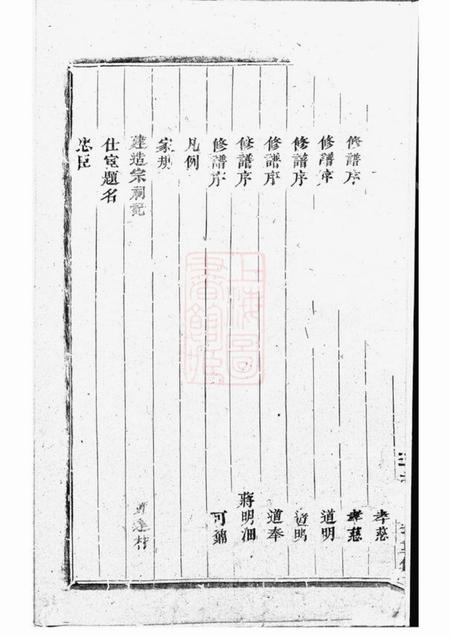 孝慈
修譜序 孝慈
修譜序 道明
修譜序 道明
修譜序 道奉
修譜序 蔣明佃
修譜序 可鏑
凡例
家規
建造宗祠記
仕宦題名
忠臣
上海圖書館藏